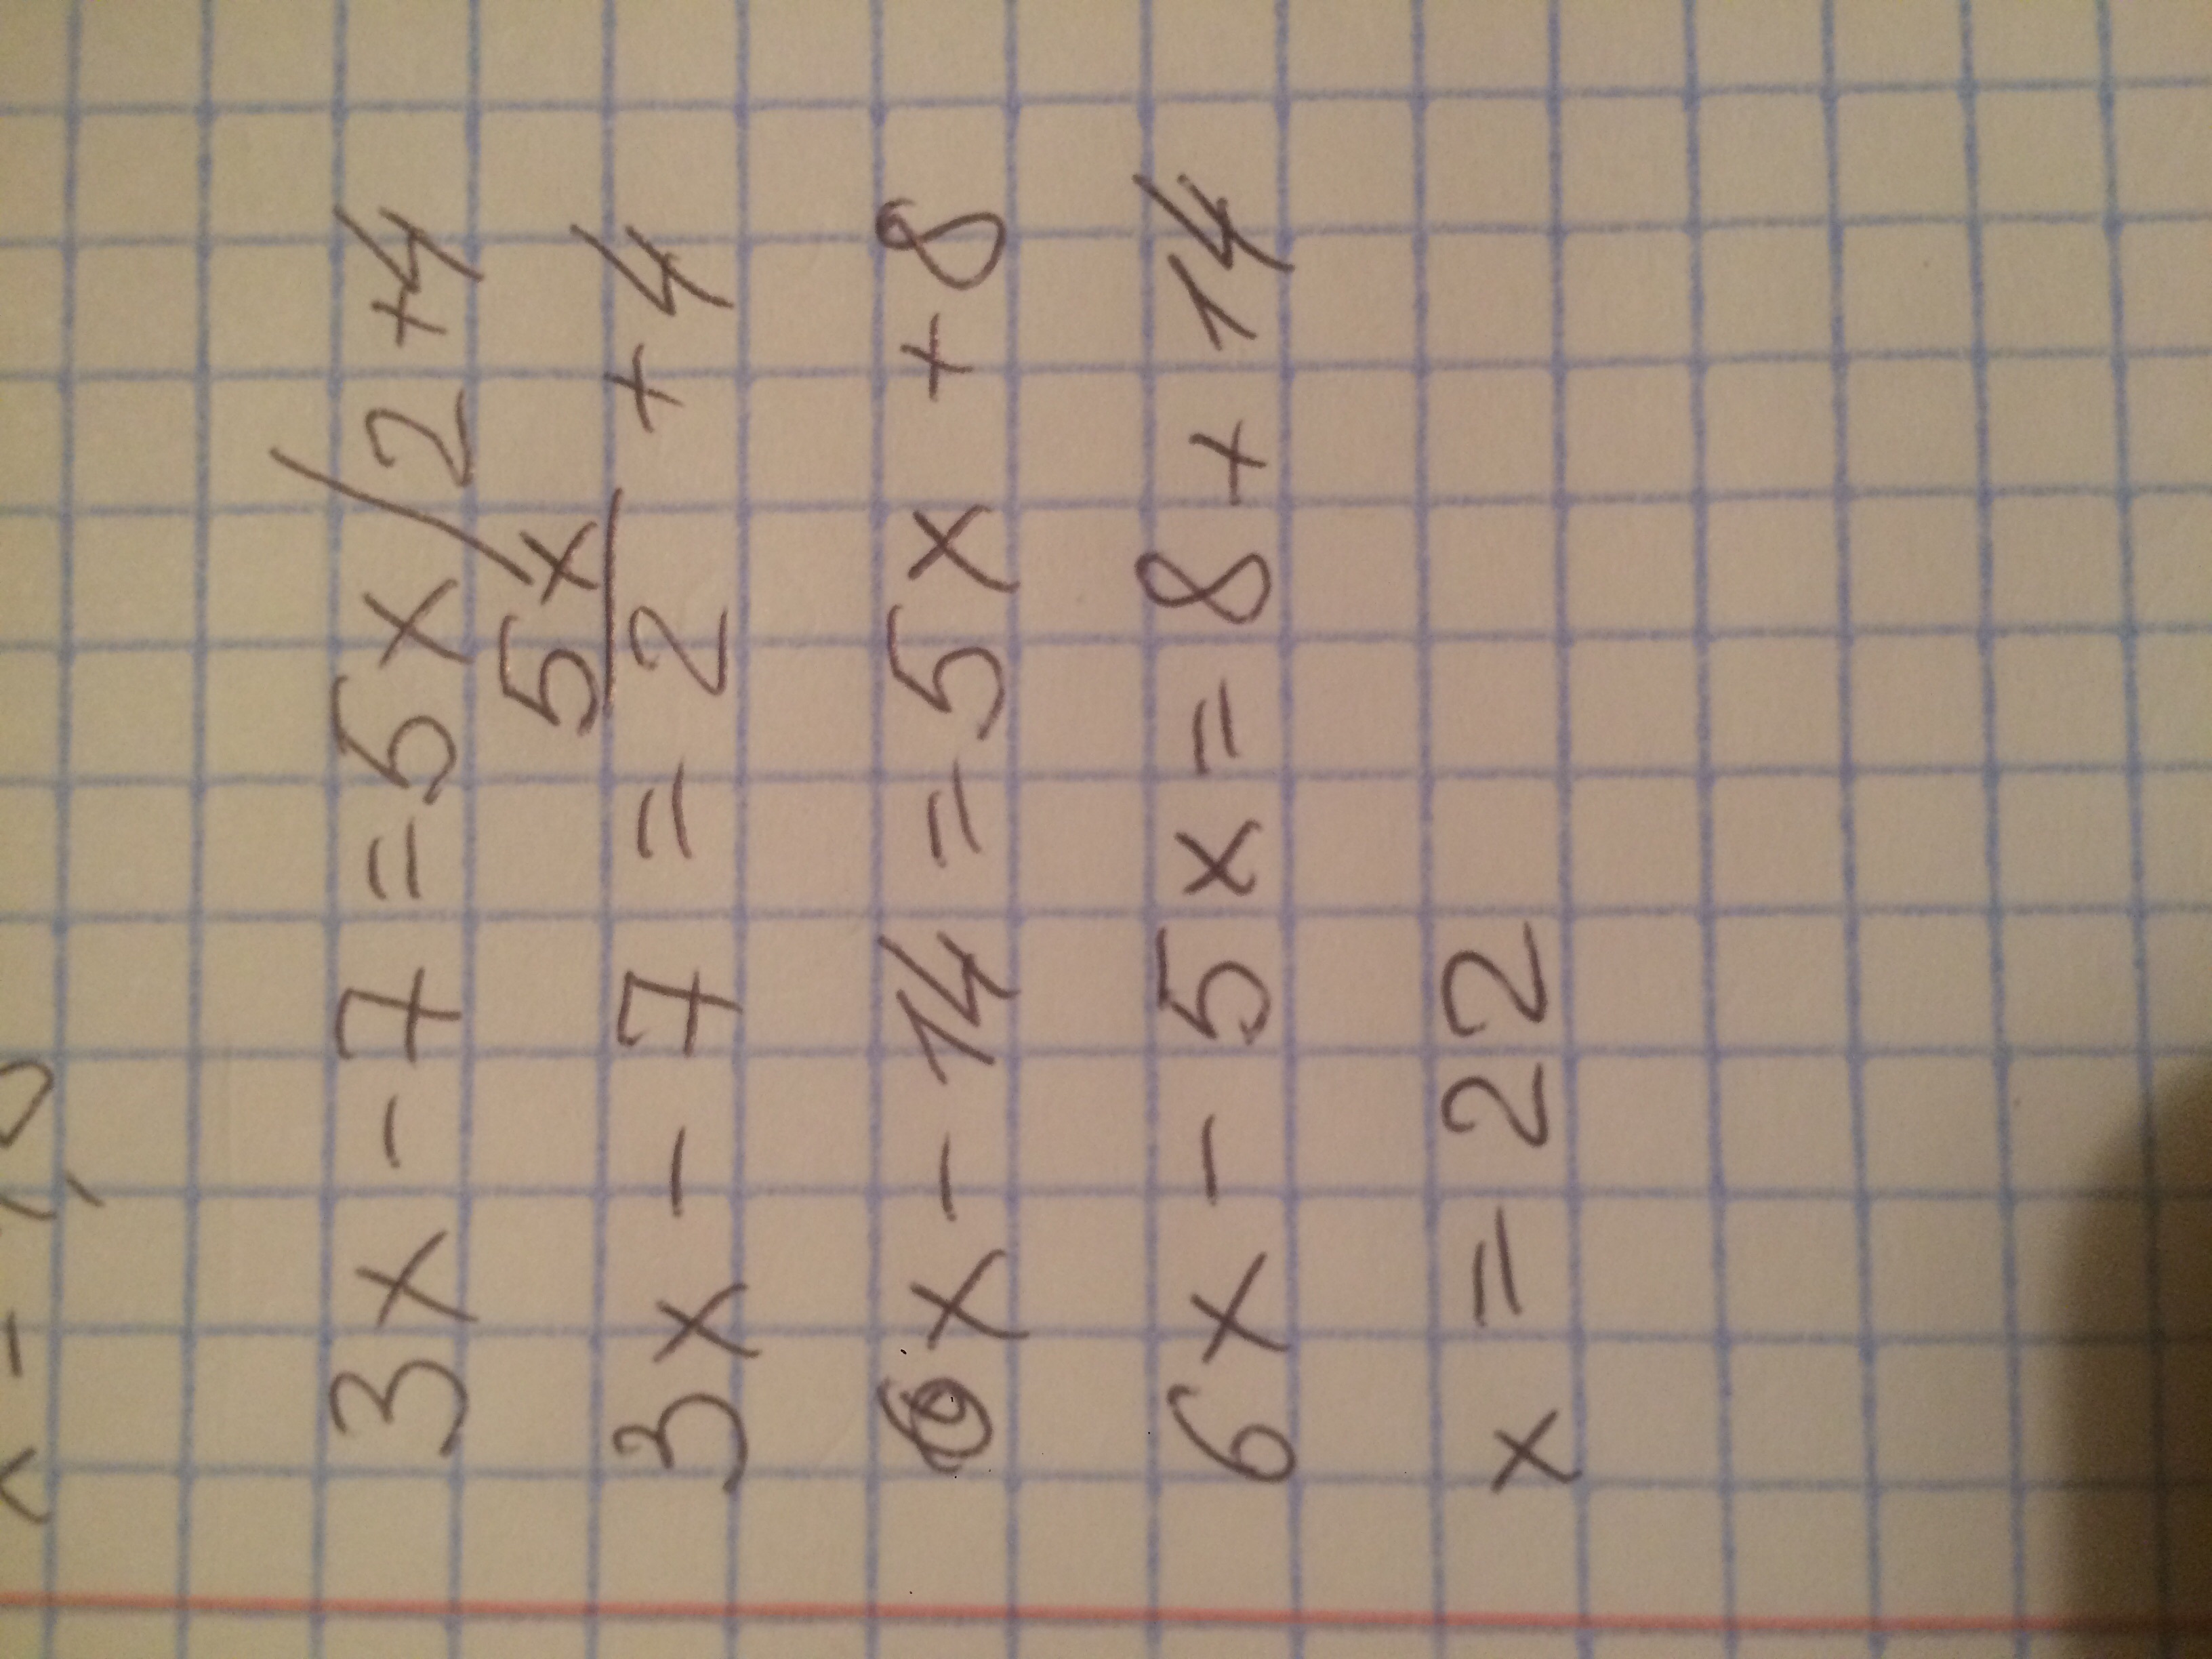 3x - 7 = 5x/2 + 4
3x - 7 = 5x/2 + 4
6x - 14 = 5x + 8
6x - 5x = 8 + 14
x = 22